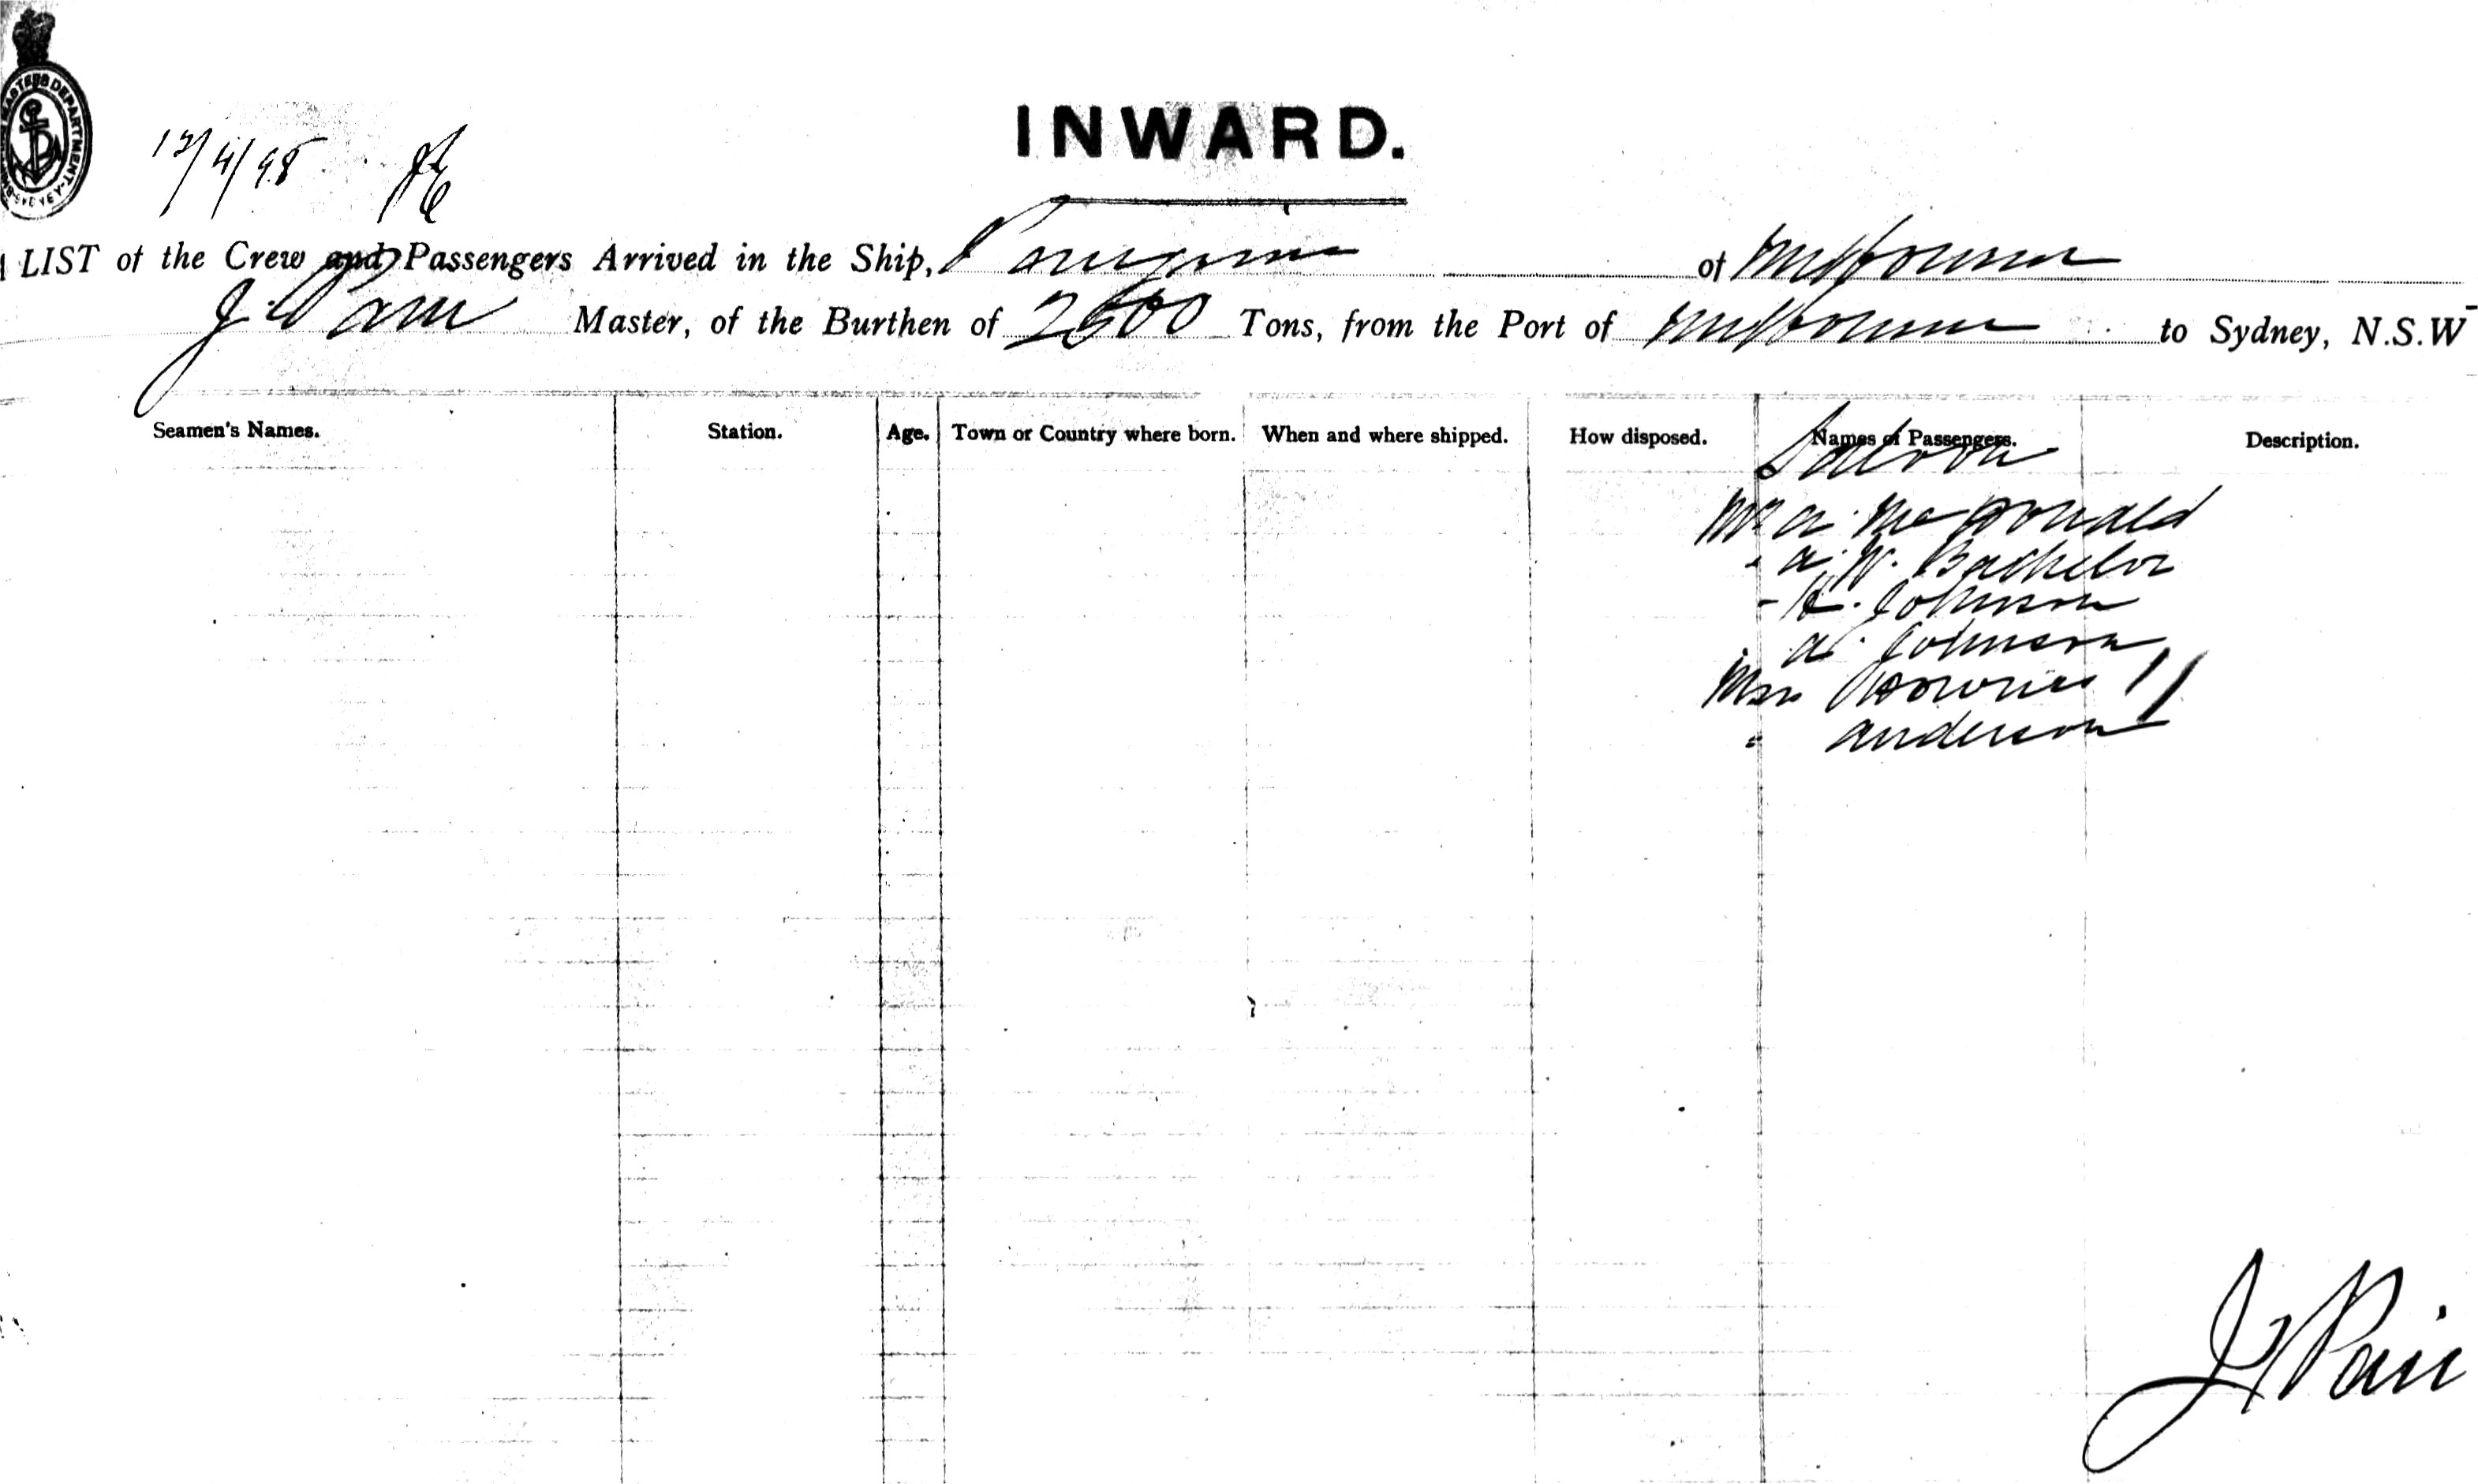 INWARD.
LIST of the Crew and Passengers Arrived in the Ship, of Melbourne
J. Pain Master, of the Burthen of 2600 Tons, from the Port of Melbourne to Sydney, N.S.W
Seamen's Names. Station. Age. Town or Country where born. When and where shipped. How disposed. Names of Passengers. Description.
Saloon
Mr A. McDonald
" A. W. Bachelor
" H. Johnson
A. Johnson
Miss Downies
" Anderson
J Pain